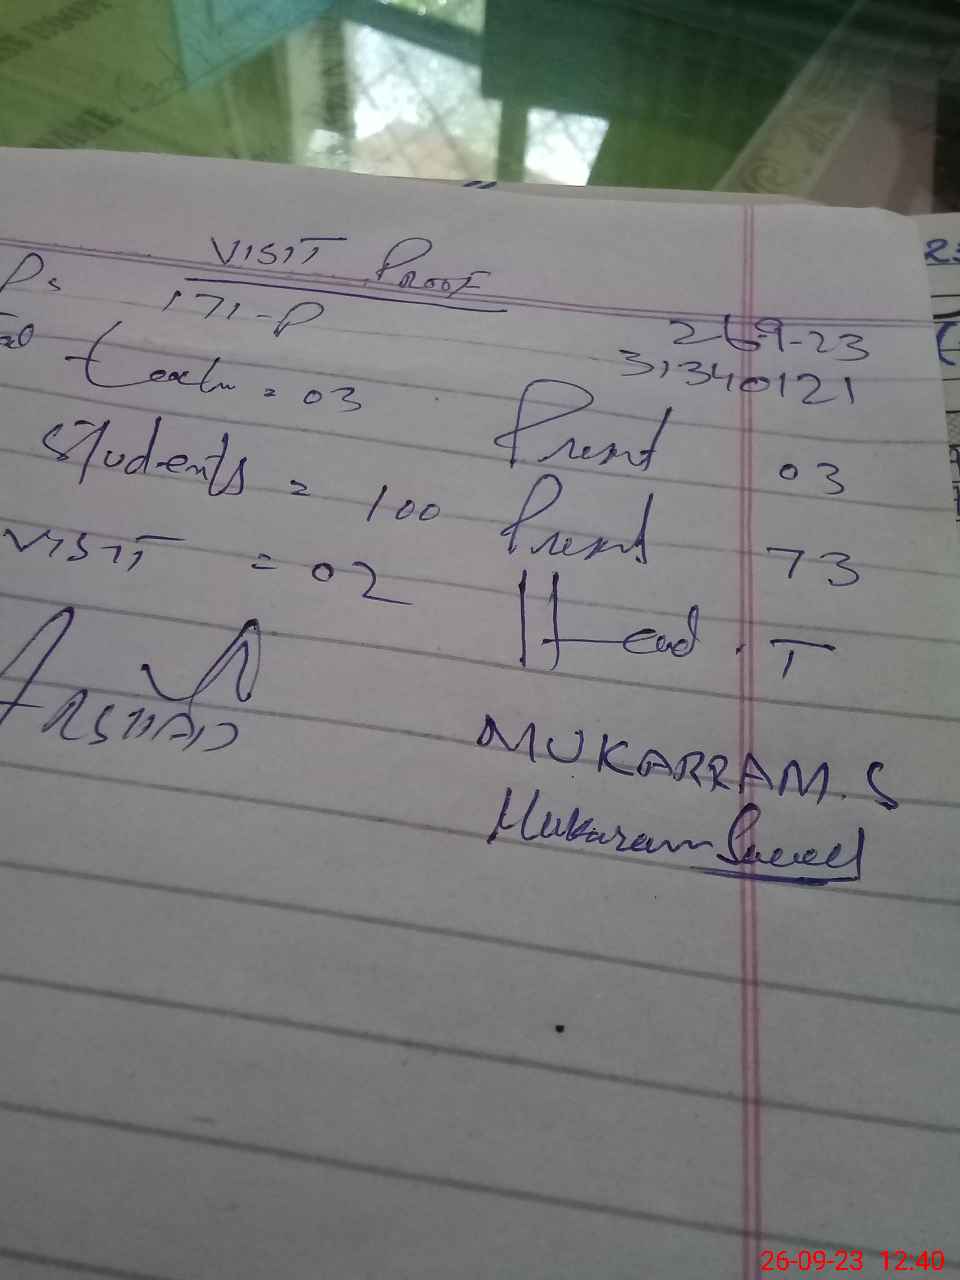 VISIT PROOF
Ps 171-P
26-9-23
31340121
Teach = 03 Present 03
Students = 100 Present 73
VISIT = 02 Head. T
ARSHAD
MUKARRAM. S
Mukaram
26-09-23 12:40